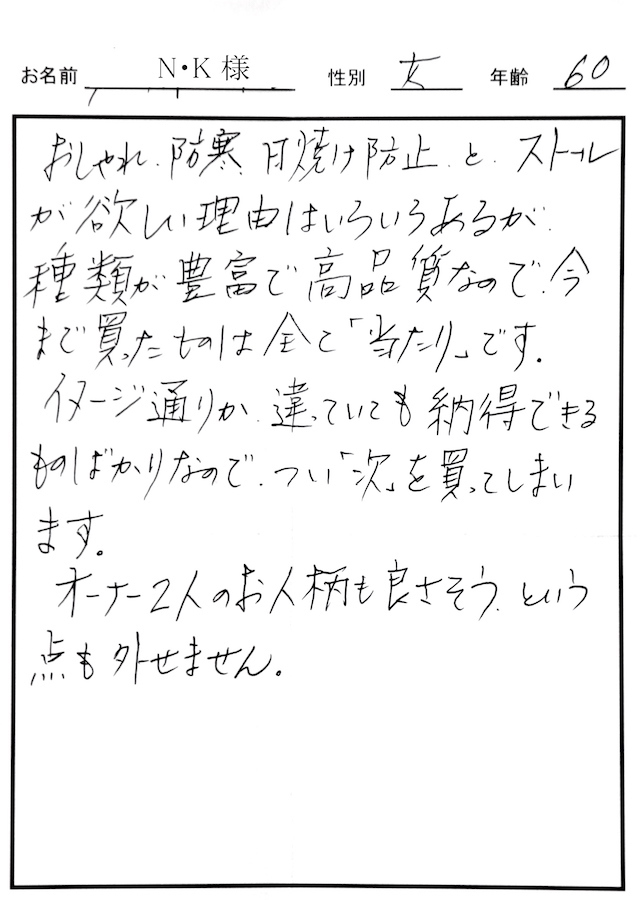 お名前 N・K 様 性別 女 年齢 60
おしゃれ、防寒、日焼け防止、と、ストール
が欲しい理由はいろいろあるが、
種類が豊富で高品質なので、今
まで買ったものは全て「当たり」です。
イメージ通りか、違っていても納得できる
ものばかりなので、つい「次」を買ってしまい
ます。
オーナー2人のお人柄も良さそう、という
点も外せません。